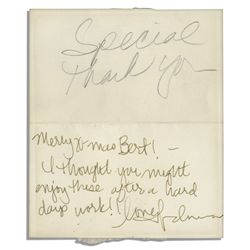 Special
Thank you
Merry Xmas Bert! –
I thought you might
enjoy these after a hard
days work!